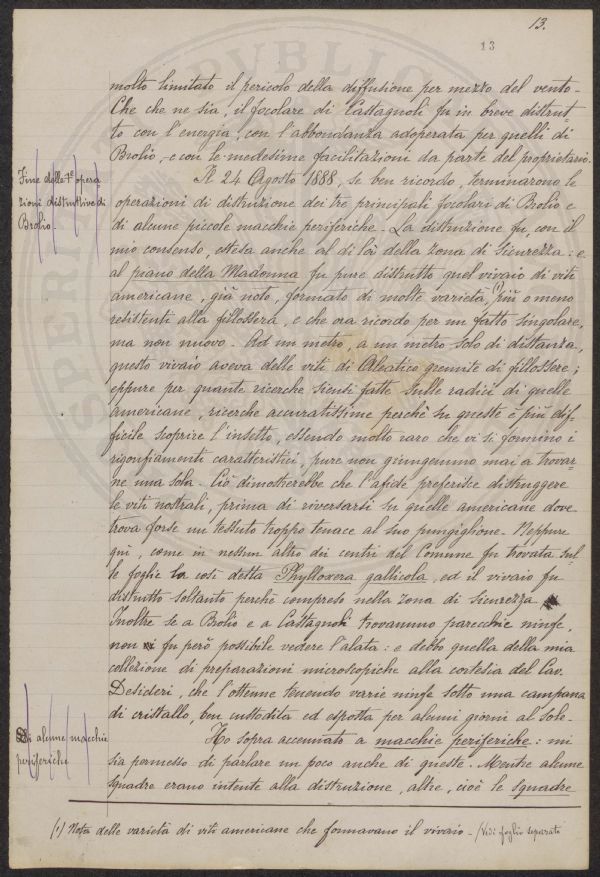 13.
13
molto limitato il pericolo della diffusione per mezzo del vento -
Che che ne sia, il focolare di Castagnoli fu in breve distrut-
to con l'energia, con l'abbondanza adoperata per quelli di
Brolio, e con le medesime facilitazioni da parte del proprietario.
Fine delle 1e opera
zioni distruttive di
Brolio.
Il 24 Agosto 1888, se ben ricordo, terminarono le
operazioni di distruzione dei tre principali focolari di Brolio e
di alcune piccole macchie periferiche - La distruzione fu, con il
mio consenso, estesa anche al di là della zona di sicurezza: e
al piano della Madonna fu pure distrutto quel vivaio di viti
americane, già noto, formato di molte varietà, (1) più o meno
resistenti alla fillossera, e che ora ricordo per un fatto singolare,
ma non nuovo - Ad un metro, a un metro solo di distanza,
questo vivaio aveva delle viti di Aleatico gremite di fillossere;
eppure per quante ricerche siensi fatte sulle radici di quelle
americane, ricerche accuratissime perchè su queste è più dif-
ficile scoprire l'insetto, essendo molto raro che vi si formino i
rigonfiamenti caratteristici, pure non giungemmo mai a trovar-
ne una sola - Ciò dimostrerebbe che l'afide preferisce distruggere
le viti nostrali, prima di riversarsi su quelle americane dove
trova forse un tessuto troppo tenace al suo pungiglione - Neppure
qui, come in nessun altro dei centri del Comune fu trovata sul-
le foglie la così detta Phylloxera gallicola, ed il vivaio fu
distrutto soltanto perchè compreso nella zona di sicurezza
Inoltre se a Brolio e a Castagnoli trovammo parecchie ninfe,
non fu però possibile vedere l'alata: e debbo quella della mia
collezione di preparazioni microscopiche alla cortesia del Cav.
Desideri, che l'ottenne tenendo varie ninfe sotto una campana
di cristallo, ben custodita ed esposta per alcuni giorni al sole -
Di alcune macchie
periferiche
Ho sopra accennato a macchie periferiche: mi
sia permesso di parlare un poco anche di queste. Mentre alcune
squadre erano intente alla distruzione, altre, cioè le squadre
(1) Nota delle varietà di viti americane che formavano il vivaio - (Vedi foglio separato